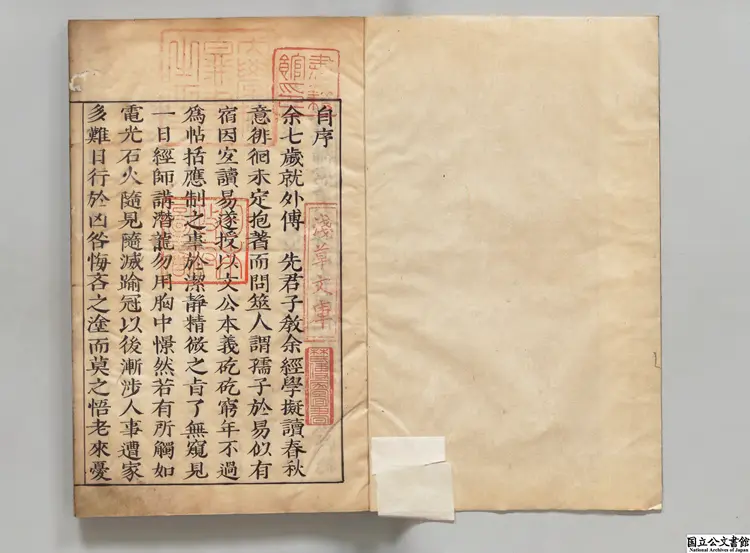 自序
余七歲就外傅　先君子教余經學擬讀春秋
意徘徊未定抱蓍而問筮人謂孺子於易似有
宿因宜讀易遂授以文公本義矻矻窮年不過
爲帖括應制之事於潔靜精微之旨了無窺見
一日經師講潛龍勿用胸中憬然若有所觸如
電光石火隨見隨滅踰冠以後漸涉人事遭家
多難日行於凶咎悔吝之塗而莫之悟老來憂
淺草文庫
国立公文書館
National Archives of Japan